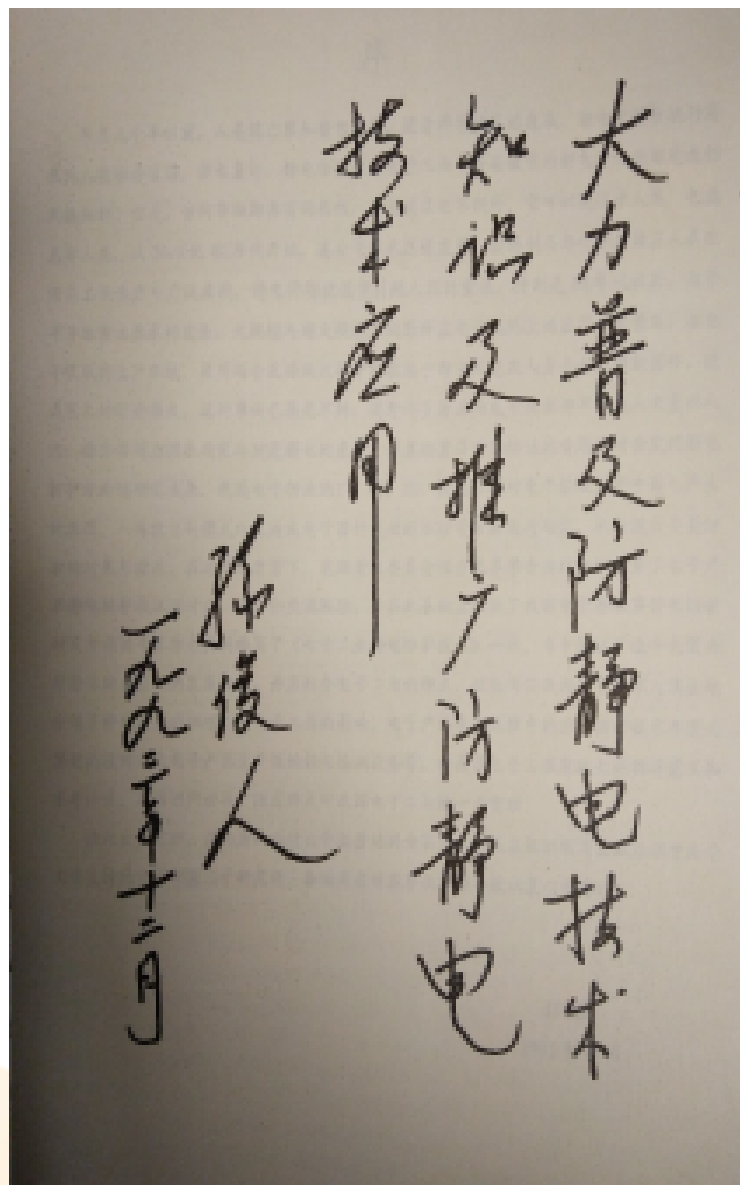 大力普及防静电技术
知识及推广防静电
技术应用
孙俊人
一九九二年十二月